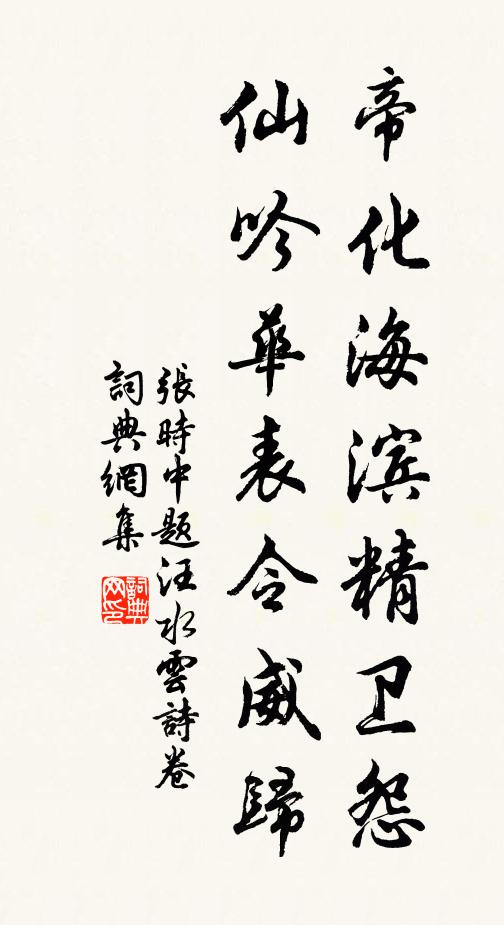 帝化海滨精卫怨
仙吟華表令威歸
張時中题汪水雲詩卷
詞典網集
詞典網印